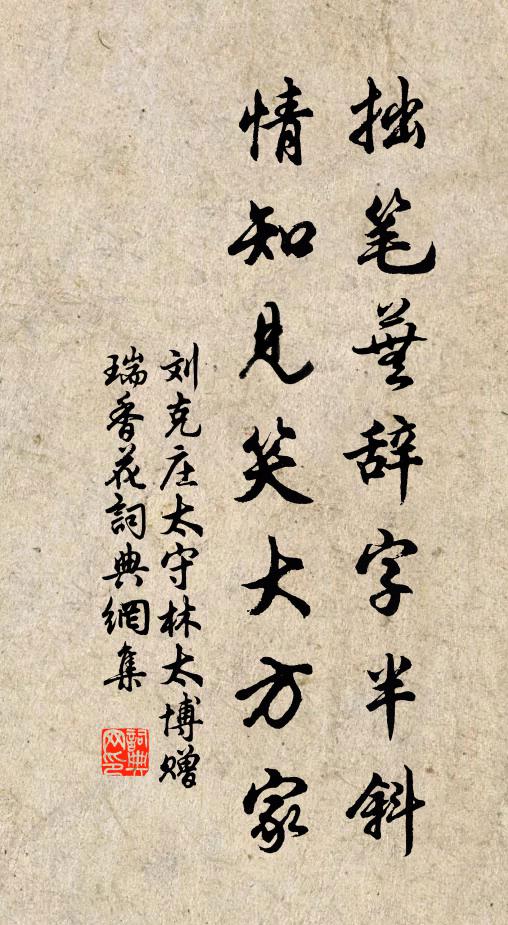 拙笔芜辞字半斜
情知见笑大方家
刘克庄太守林太博赠
瑞香花詞典網集
詞典
网印